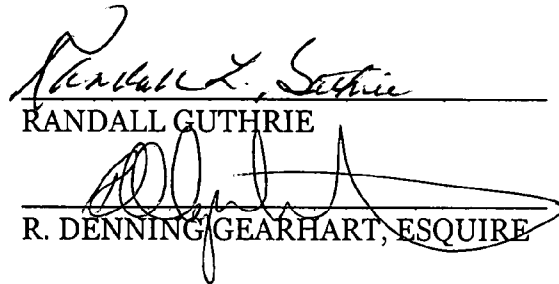 Randall L. Guthrie
RANDALL GUTHRIE
R. DENNING GEARHART, ESQUIRE